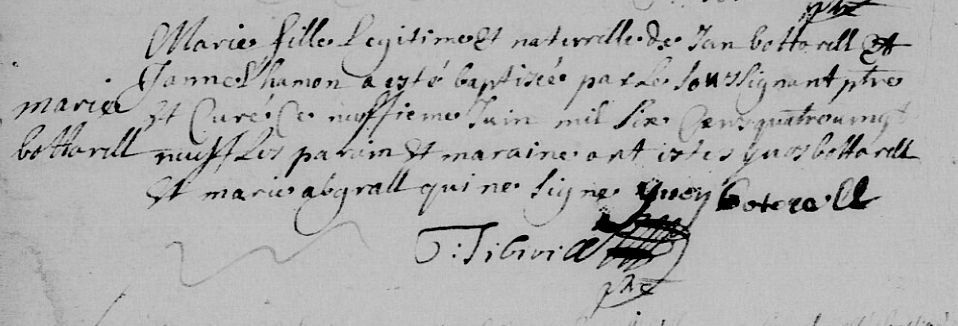 ptre
Marie fille Legitime et naturelle de Jan bottorell et
Janne L'hamon a esté baptizée par le soussignant ptre
marie
et Curé Ce neuffieme Juin mil six Cens quatre vingt
bottorell
neuff Les parain et maraine ont estes yves bottorell
et marie abgrall qui ne signe yven boterell
T: Tibivi
ptre